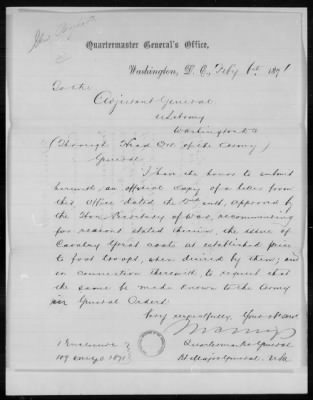 Quartermaster General's Office,
Washington, D. C., Feby 6th 1871
To the
Adjutant General
U.S. Army
Washington
(Through Head Qrs of the Army)
General:
I have the honor to submit
herewith an official copy of a letter from
this Office dated the 2nd inst, approved by
the Hon. Secretary of War, recommending
for reasons stated therein, the issue of
Cavalry Great coats at established price
to foot troops, when desired by them; and
in connection therewith, to request that
the same be made known to the Army
in General Orders.
Very respectfully, Your Obt Servt
Quartermaster General
Bt Major General, U.S.A.
1 Enclosure
109 1871